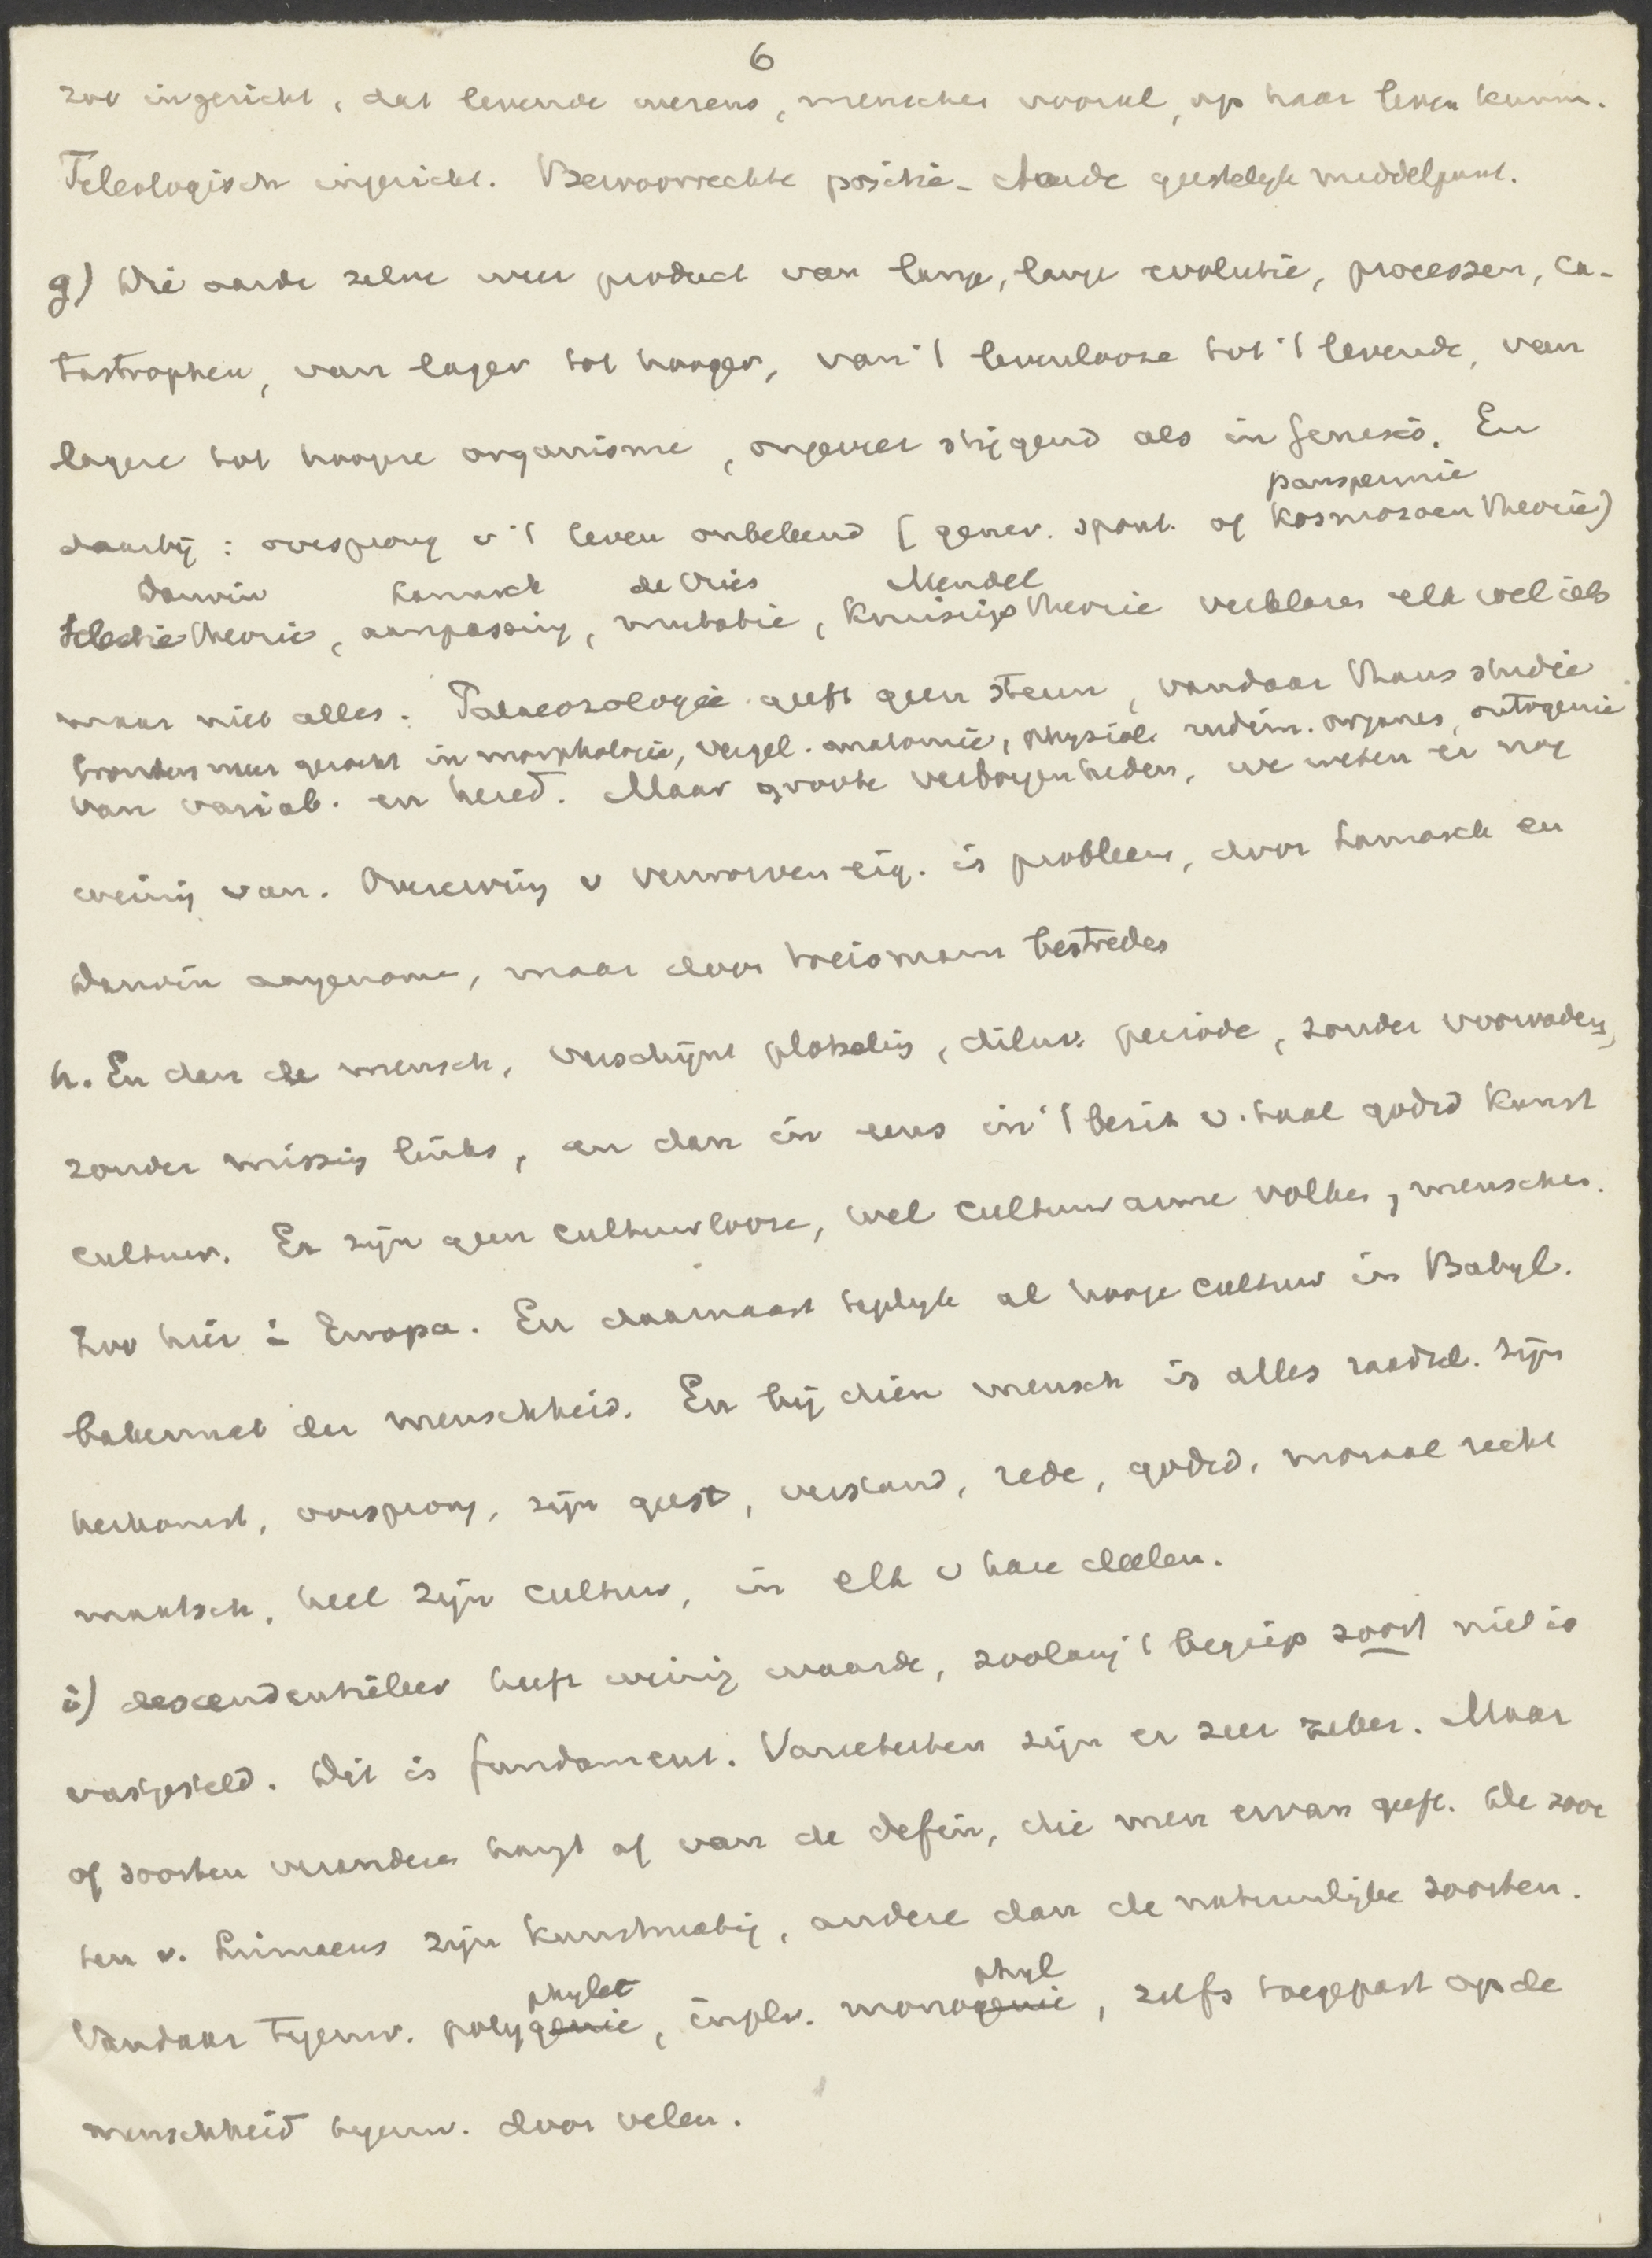 6
zoo ingericht, dat levende wezens, menschen vooral, op haar leven kunnen.
Teleologisch ingericht. Bevoorrechte positie – Aarde geestelijk middelpunt.
g) Die aarde zelve weer product van lange, lange evolutie, processen, ca-
tastrophen, van lager tot hooger, van 't levenlooze tot 't levende, van
lagere tot hoogere organisme, ongeveer stijgend als in Genesis. En
panspermie
daarbij: oorsprong v 't leven onbekend (gener. spont. of Kosmozoen theorie)
Darwin Lamarck de Vries Mendel
Selectie theorie, aanpassing, mutatie, Kruisings theorie verklaren elk wel iets
maar niet alles. Palaeozologie geeft geen steun, vandaar thans studie
bronnen meer gezocht in morphologie, vergel. anatomie, physiol. rudim. organen, ontogenie
van variab. en hered. Maar groote verborgenheden, we weten er nog
weinig van. Overerving v verworven eig. is probleem, door Lamarck en
Darwin aangenomen, maar door Weismann bestreden
h. En dan de mensch, verschijnt plotseling, diluv. periode, zonder voorvaders,
zonder missing links, en dan in eens in 't bezit v. taal godsd kunst
cultuur. Er zijn geen cultuurlooze, wel cultuurarme volken, menschen.
Zoo hier i Europa. En daarnaast tegelijk al hooge cultuur in Babyl.
bakermat der menschheid. En bij dien mensch is alles raadsel. Zijn
herkomst, oorsprong, zijn geest, verstand, rede, godsd, moraal recht
maatsch. heel zijn cultuur, in elk v hare deelen.
i) descendentieleer heeft weinig waarde, zoolang 't begrip soort niet is
vastgesteld. Dit is fundament. Varieteiten zijn er zeer zeker. Maar
of soorten veranderen hangt af van de defin, die men ervan geeft. De soor
ten v. Linnaeus zijn kunstmatig, andere dan de natuurlijke soorten.
phylet phyl
Vandaar tegenw. polygenie, in plv. monogenie, zelfs toegepast op de
menschheid tegenw. door velen.